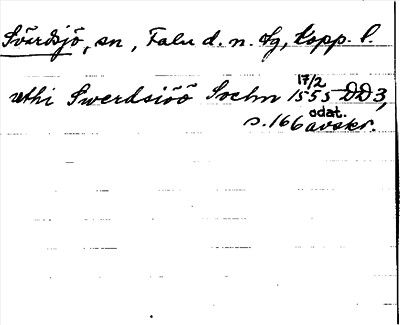 Svärdsjö, sn, Falu d. n. lg, Kopp. l.
uthi Swerdsiöö Sochn 17/2 1555 DD 3,
s. 166 odat. avskr.